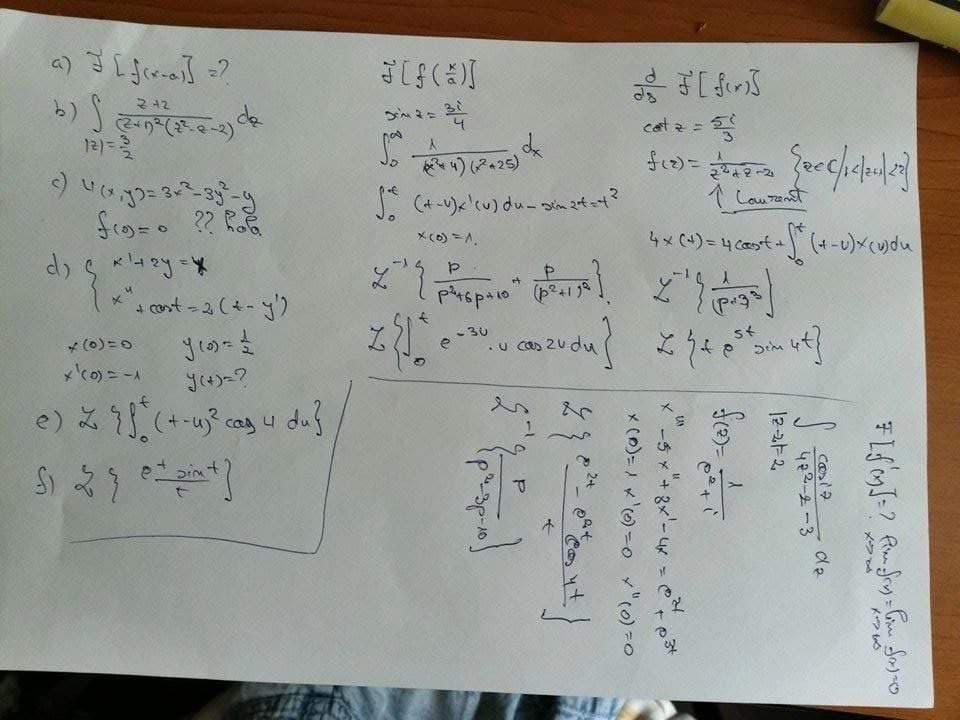 a) F[f(x-a)] = ?
b) ∫ |z|=3/2 (z+2)/((z+1)²(z²-z-2)) dz
c) u(x,y)=3x²-3y²-y
f(0)=0 ??
d) { x'+2y=
x''+cost=2(t-y')
x(0)=0 y(0)=1/2
x'(0)=-1 y(t)=?
e) L{∫₀ᵗ (t-u)² cos u du}
f) L{ (eᵗ sin t)/t }
F[f(x/a)]
sin z = 3i/4
∫₀^∞ 1/((x²+4)(x²+25)) dx
∫₀ᵗ (t-u)x'(u) du - sin2t = t²
x(0)=1.
L⁻¹{ p/(p²+6p+10) + p/(p²+1)² }
L{∫₀ᵗ e^(-3u) · u cos2u du}
d/ds F[f(x)]
cos z = 5i/3
f(z) = 1/(z²+z-2) {z∈C/1<|z+1|<2}
↑ Laurent
4x(t)=4cost+∫₀ᵗ (t-u)x(u)du
L⁻¹{ 1/(p+3)³ }
L{t e^(5t) sin 4t}
F[f'(x)]=? lim x→∞ f(x) = lim x→-∞ f(x)=0
∫ |z-2|=2 /(4z²-z-3) dz
f(z) = 1/(e^z+i)
x'''-5x''+8x'-4x = e^(2t)+e^(3t)
x(0)=1 x'(0)=0 x''(0)=0
L{ (e^(2t) - e^(2t) cos 4t)/t }
L⁻¹{ p/(p²-3p-10) }